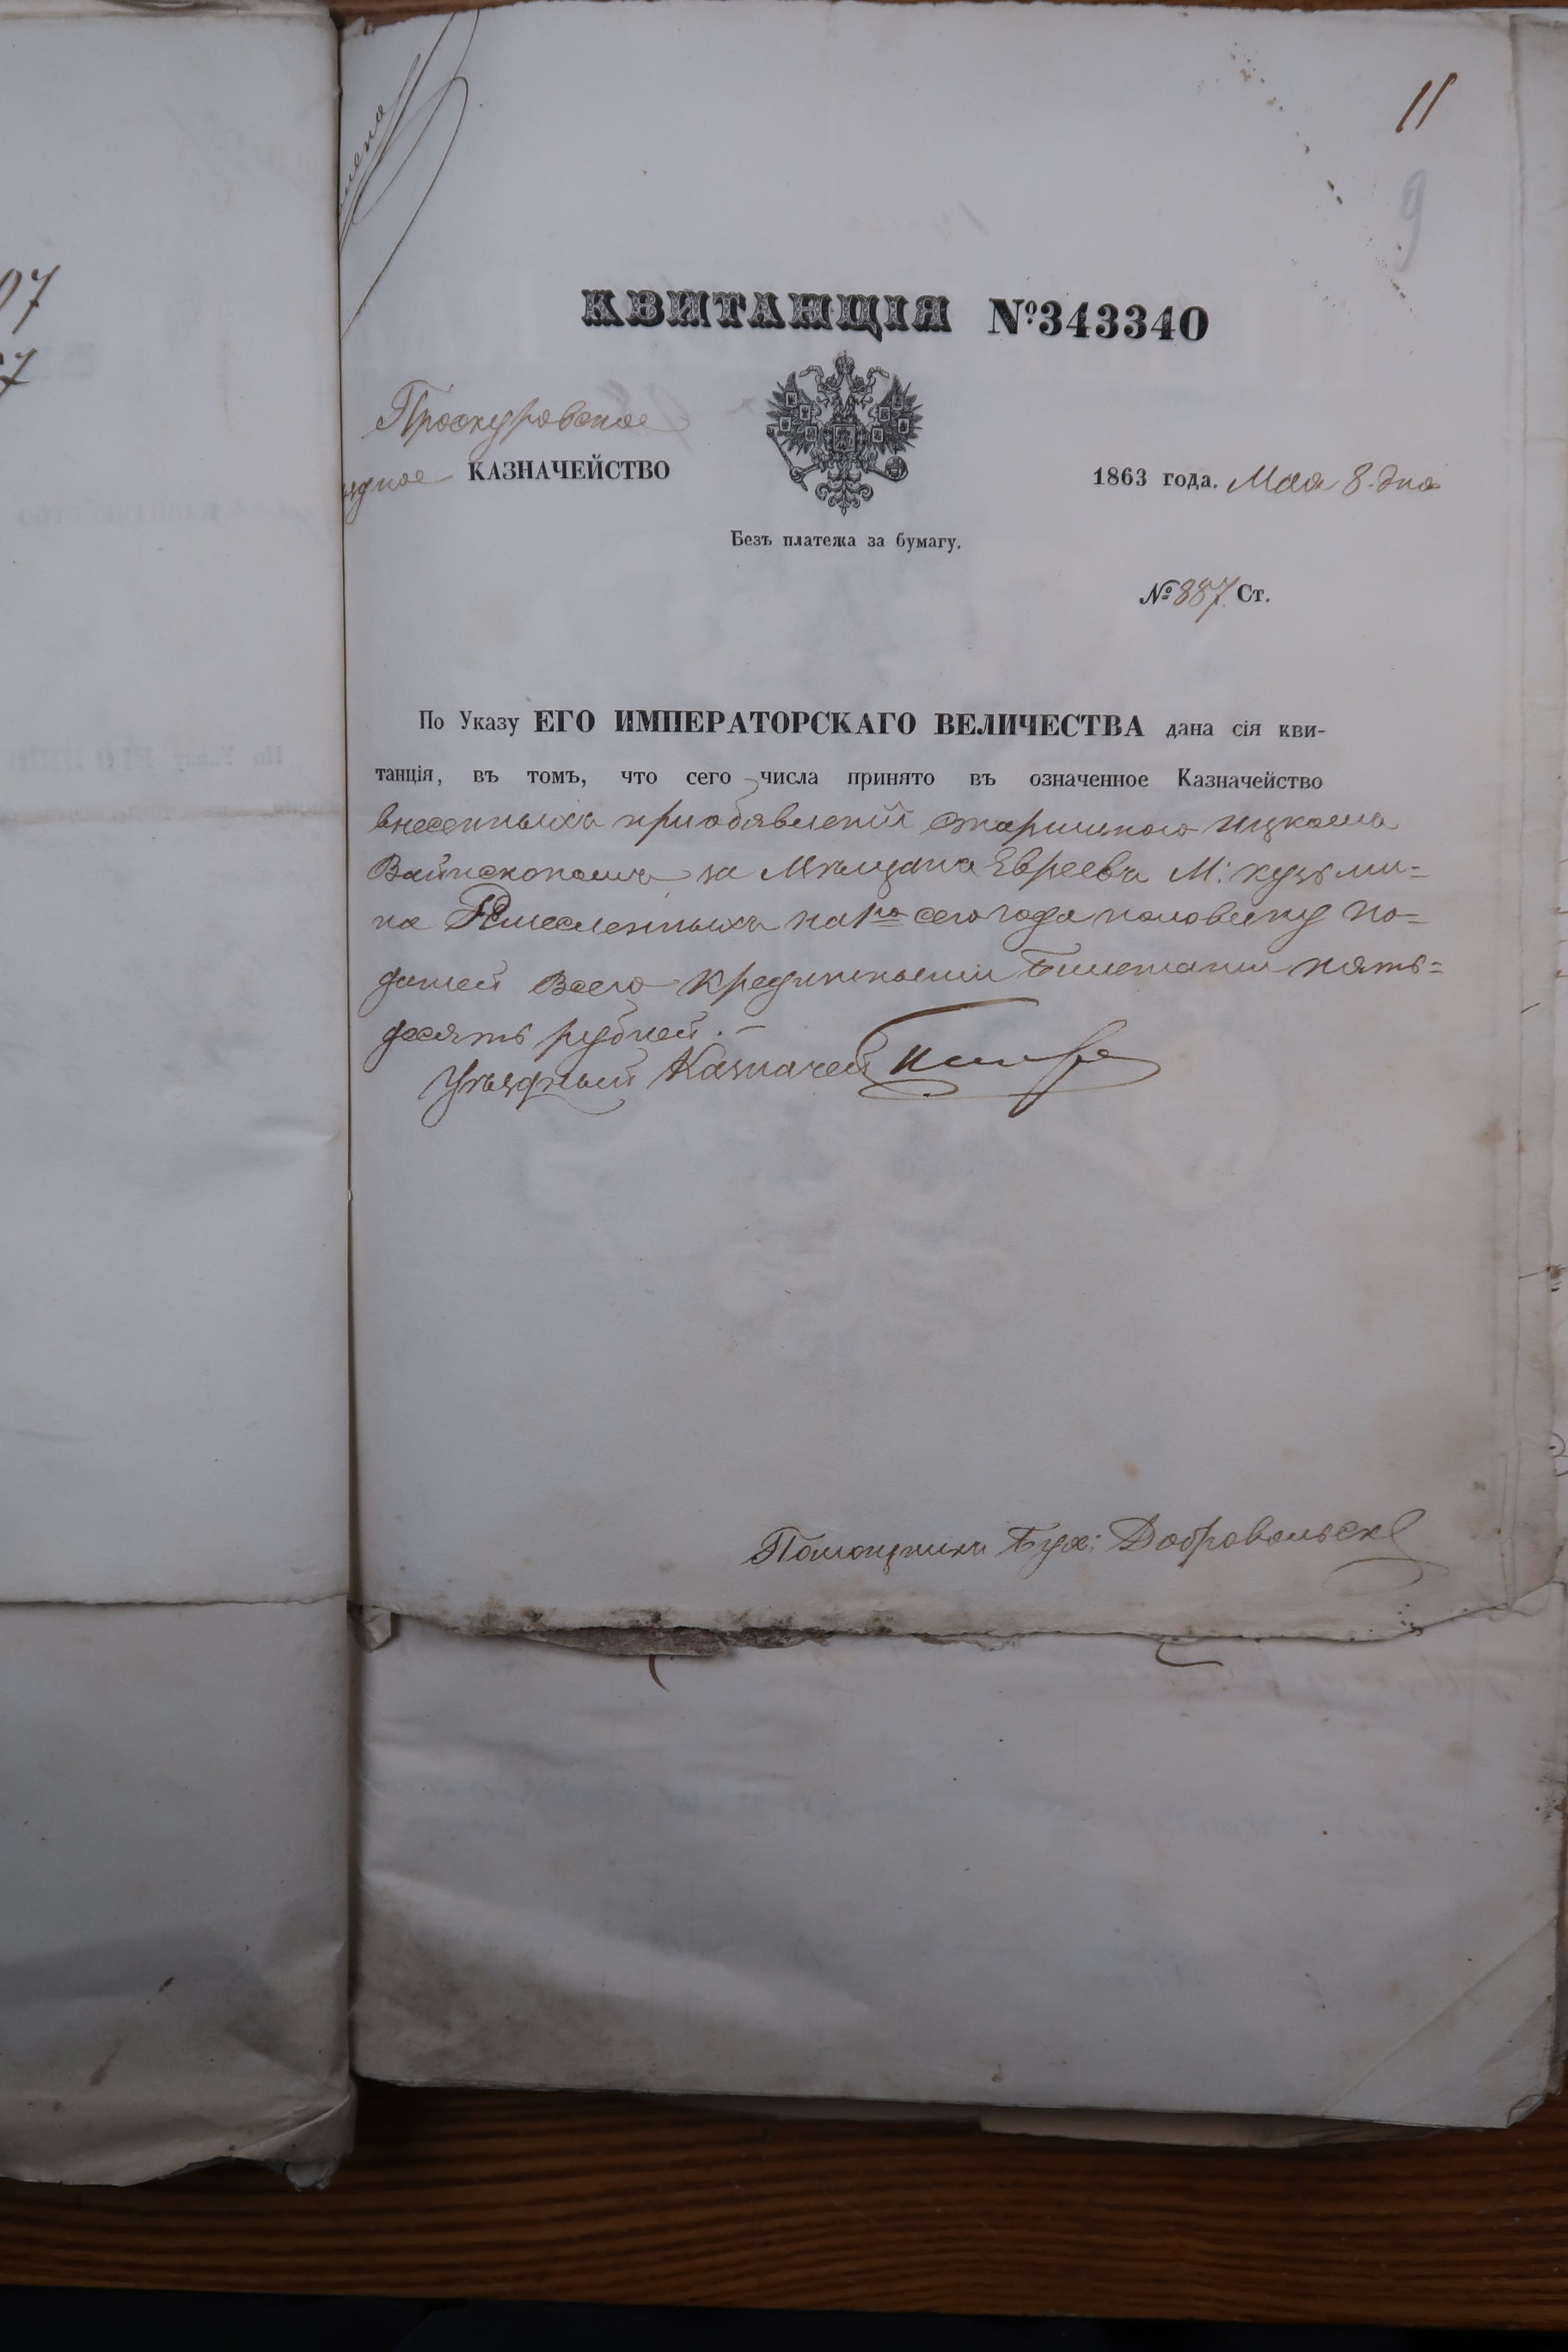 11
9
07
КВИТАНЦІЯ №343340
Проскуровское
КАЗНАЧЕЙСТВО
1863 года. Мая 8. дня
Безъ платежа за бумагу.
№ 887. Ст.
По Указу ЕГО ИМПЕРАТОРСКАГО ВЕЛИЧЕСТВА дана сія кви-
танція, въ томъ, что сего числа принято въ означенное Казначейство
внесенныхъ при объявленіи Старшиною Ицкомъ
за Мѣщанъ Евреевъ М: Кузьми-
на Ремесленныхъ на 1ю сего года половину по-
датей Всего Кредитными Билетами пять-
десятъ рублей. —
Уѣздный Казначей
Помощникъ Бух: Добровольск